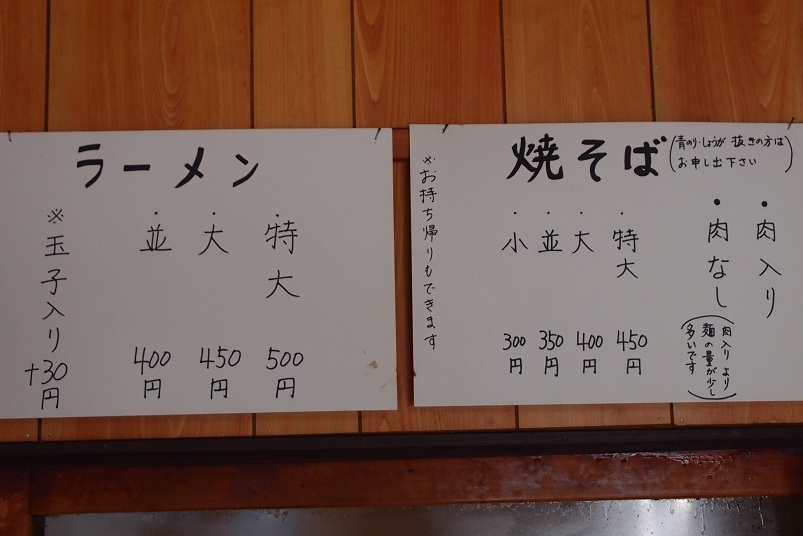 ラーメン
・特大 500円
・大 450円
・並 400円
※玉子入り +30円
焼そば
(青のり・しょうが 抜きの方は
お申し出下さい)
・肉入り
・肉なし
(肉入りより
麺の量が少し
多いです)
・特大 450円
・大 400円
・並 350円
・小 300円
※お持ち帰りもできます